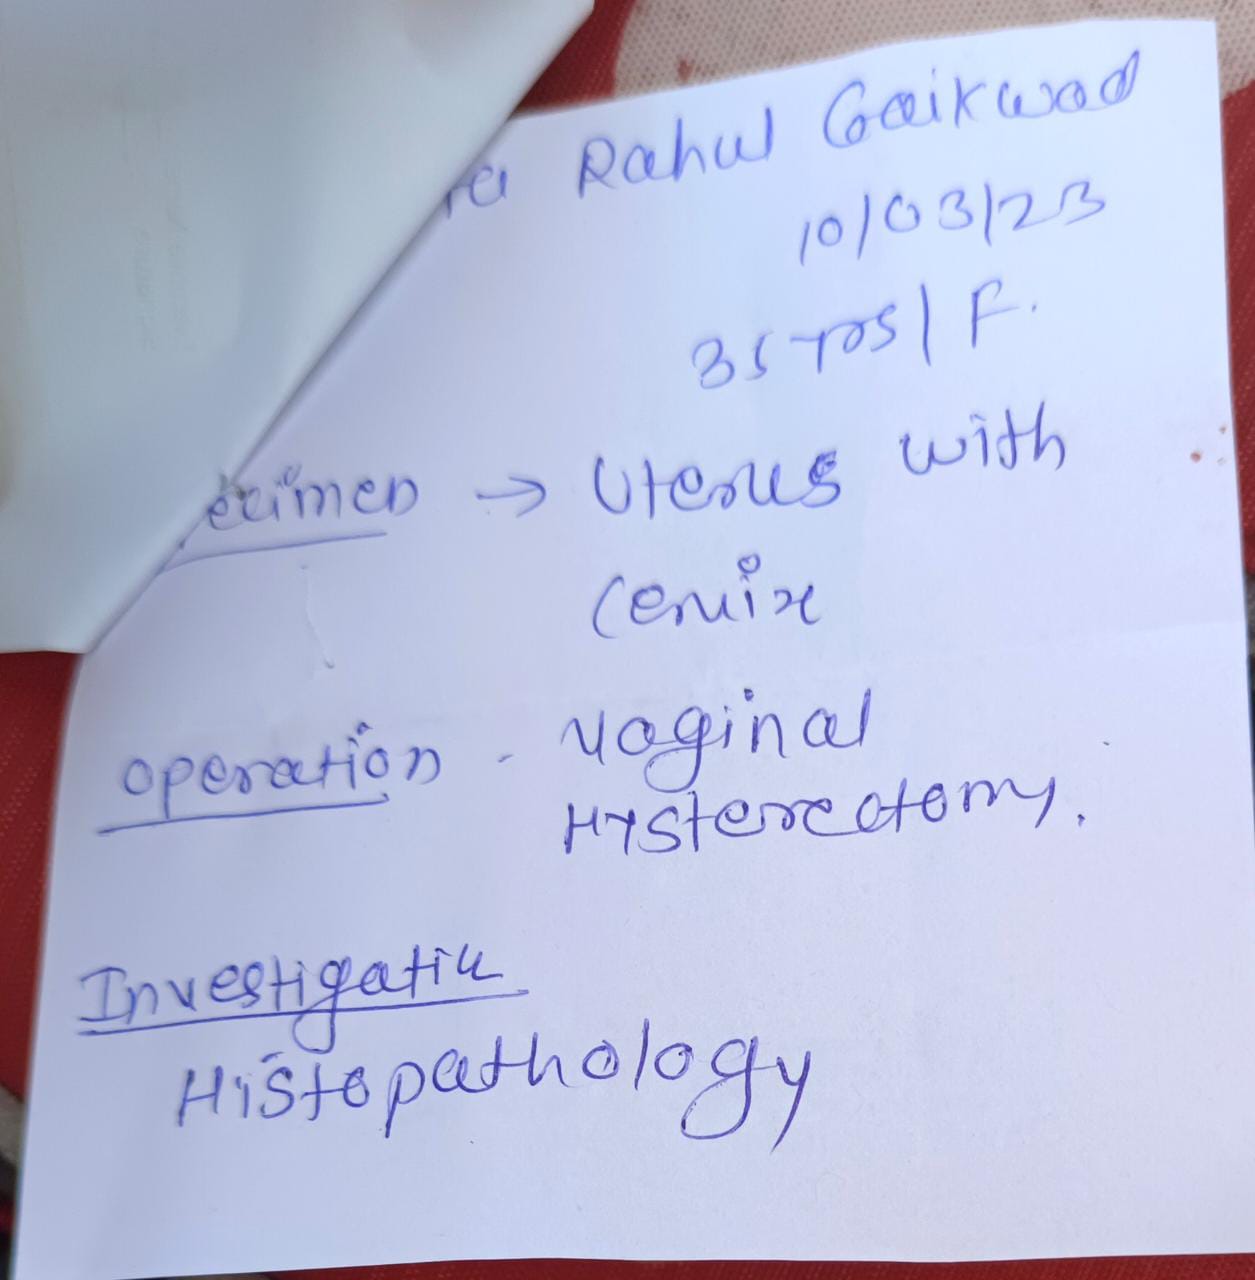 Rahul Gaikwad
10/03/23
35 yrs | F.
ecimen → Uterus with
Cervix
operation - Vaginal
Hysterectomy.
Investigatin
Histopathology